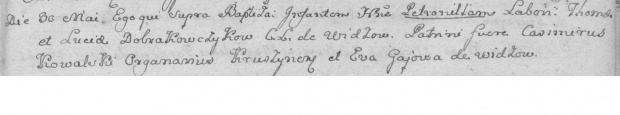 Die 30 Mai. Ego qui supra Baptiza: Infantem Nõe Petronillam Labor: Thomæ
et Luciæ Dobrakowczykow C.L. de Widzow. Patrini fuere Casimirus
Kowalski Organarius Kruszynen et Eva Gajowa de Widzow.